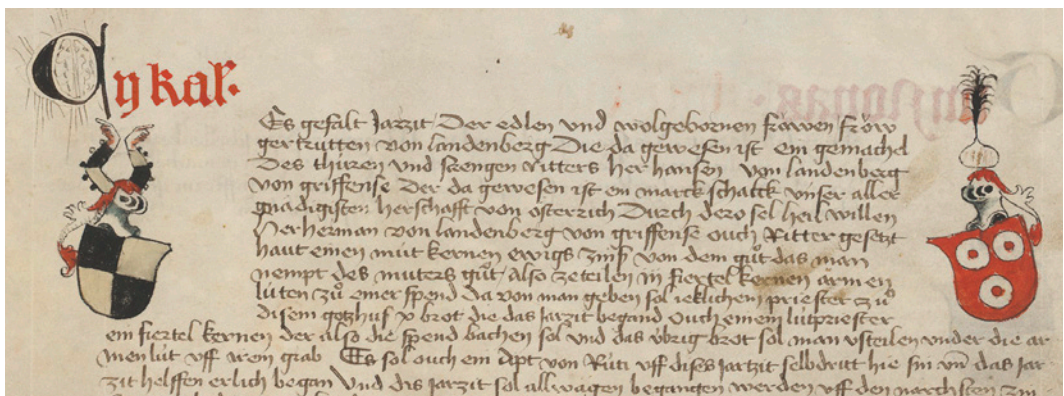 q ij kal·
Es gefalt Jarzit Der edlen vnd wolgebornen fröwen fröw
gertrutten von landenberg Die da gewesen ist ein gemachel
Des thüren vnd strengen ritters her hansen von landenberg
von griffense Der da gewesen ist ein marckschalck vnser aller
gnädigisten herschafft von österrich Durch dero sel heil willen
Her herman von landenberg von griffense ouch Ritter gesetzt
haut einen müt kernen ewigs zinß von dem gůt das man
nempt des muters gůt Also zeteilen iii fiertel kernen armen
lüten zů einer spend da von man geben sol ieklichem priester zů
disem gotzhus x brot die das Jarzit begand Ouch einem lütpriester
ein fiertel kernen der also die spend bachen sol vnd das übrig brot sol man vsteilen vnder die ar
men lüt vff irem grab Es sol ouch ein Apt von Rüti vff dises Jartzit selbdritt hie sin vnd das Jar
zit helffen erlich began Vnd dis Jarzit sol allwägen begangen werden vff den nächsten